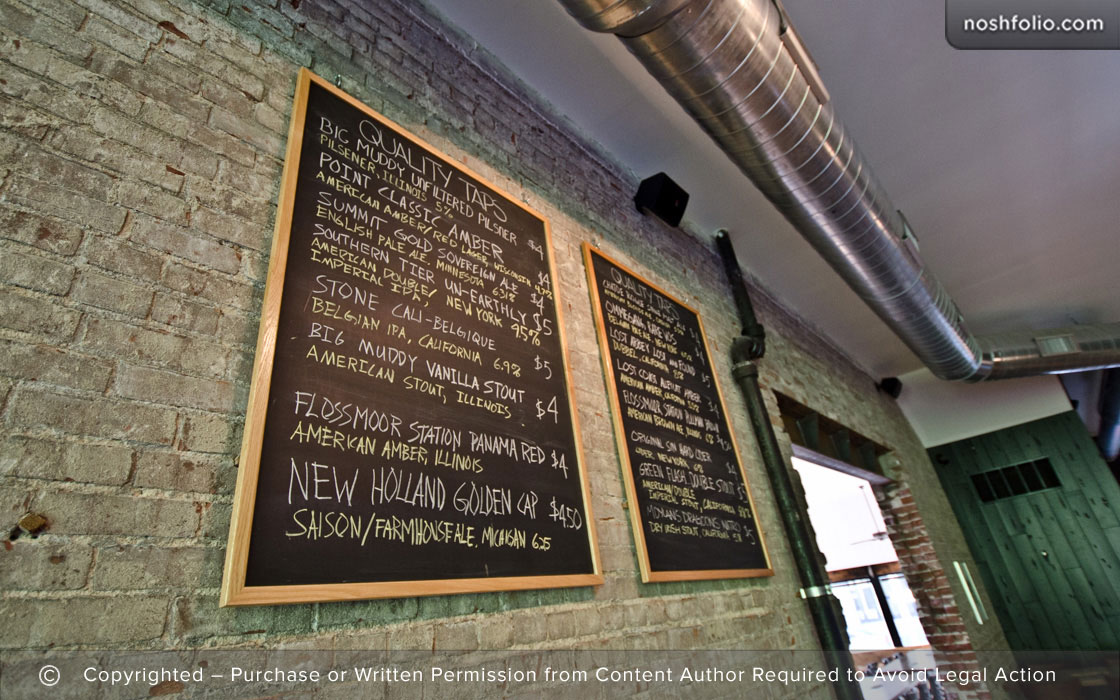 noshfolio.com
QUALITY TAPS
BIG MUDDY UNFILTERED PILSNER $4
PILSENER, ILLINOIS 5%
POINT CLASSIC AMBER $4
AMERICAN AMBER/RED LAGER, WISCONSIN
SUMMIT GOLD SOVEREIGN ALE $4
ENGLISH PALE ALE. MINNESOTA
SOUTHERN TIER UN-EARTHLY $5
AMERICAN DOUBLE/ NEW YORK 9.5%
IMPERIAL IPA,
STONE CALI-BELGIQUE $5
BELGIAN IPA, CALIFORNIA 6.9%
BIG MUDDY VANILLA STOUT $4
AMERICAN STOUT, ILLINOIS
FLOSSMOOR STATION PANAMA RED $4
AMERICAN AMBER, ILLINOIS
NEW HOLLAND GOLDEN CAP $4.50
SAISON/FARMHOUSE ALE. MICHIGAN 6.25
QUALITY TAPS
OMMEGANG RARE VOS $4
LOST ABBEY LOST AND FOUND $5
DUBBEL, CALIFORNIA
LOST COAST AMBER $4
AMERICAN AMBER, CALIFORNIA
FLOSSMOOR STATION PULLMAN BROWN
AMERICAN BROWN ALE, ILLINOIS
ORIGINAL SIN HARD CIDER $4
CIDER, NEW YORK, 6%
GREEN FLASH DOUBLE STOUT $5
AMERICAN/DOUBLE
IMPERIAL STOUT, CALIFORNIA
MOYLANS DRAGOONS NITRO $5
DRY IRISH STOUT, CALIFORNIA
© Copyrighted – Purchase or Written Permission from Content Author Required to Avoid Legal Action